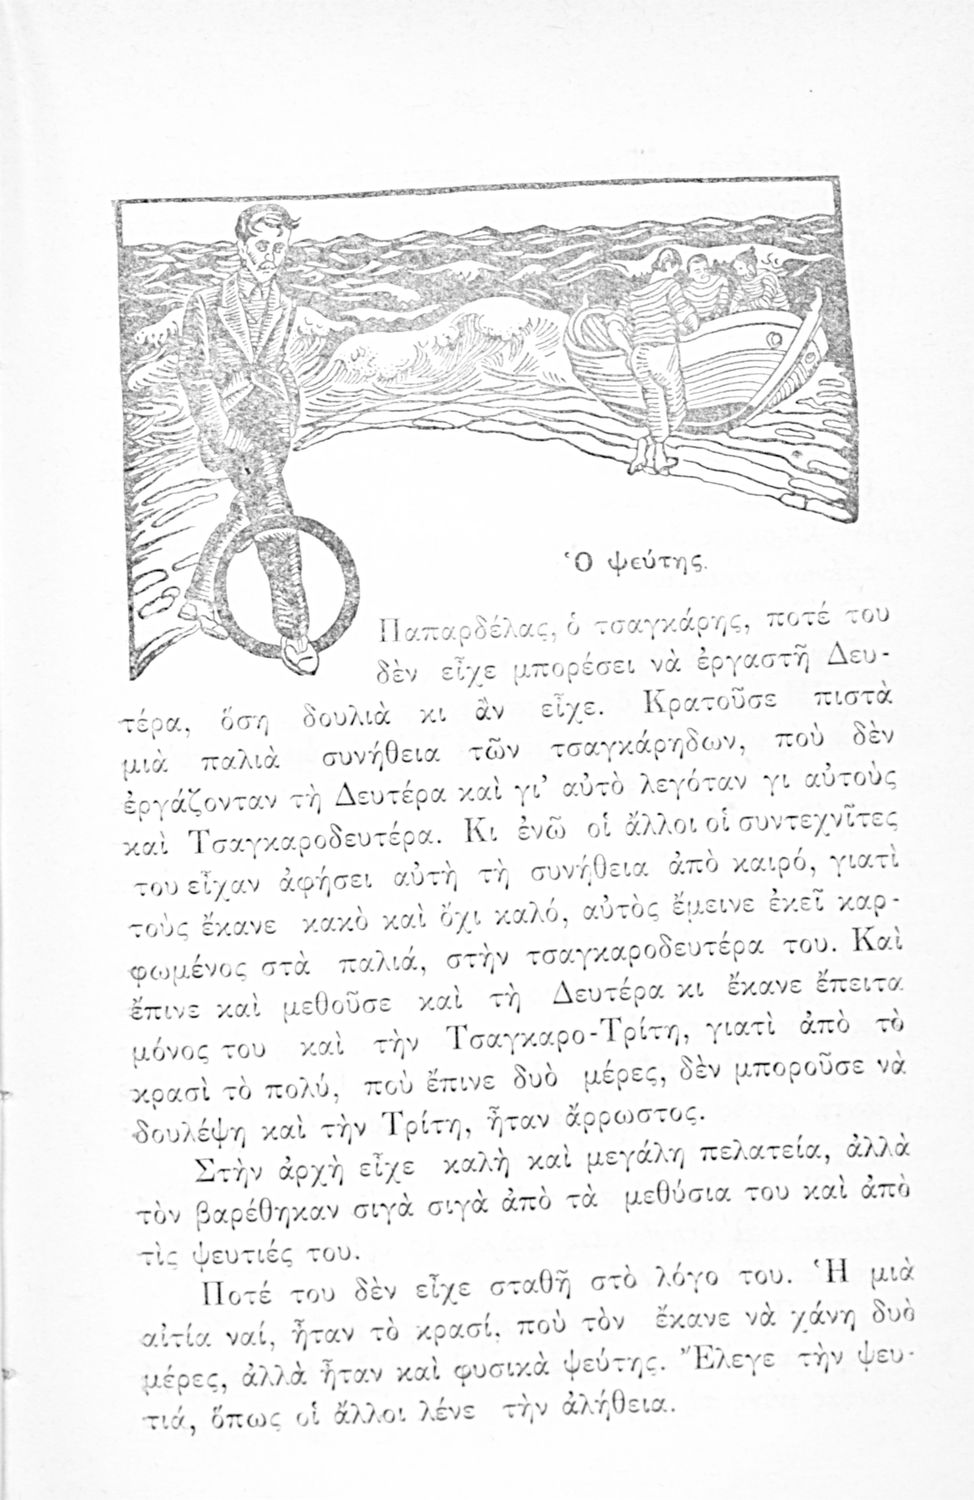 Ὁ ψεύτης.
Παπαρδέλας, ὁ τσαγκάρης, ποτέ του
δὲν εἶχε μπορέσει νὰ ἐργαστῆ Δευ-
τέρα, ὅση δουλιὰ κι ἂν εἶχε. Κρατοῦσε πιστὰ
μιὰ παλιὰ συνήθεια τῶν τσαγκάρηδων, ποὺ δὲν
ἐργάζονταν τὴ Δευτέρα καὶ γι’ αὐτὸ λεγόταν γι αὐτοὺς
καὶ Τσαγκαροδευτέρα. Κι ἐνῶ οἱ ἄλλοι οἱ συντεχνῖτες
του εἶχαν ἀφήσει αὐτὴ τὴ συνήθεια ἀπὸ καιρό, γιατὶ
τοὺς ἔκανε κακὸ καὶ ὄχι καλό, αὐτὸς ἔμεινε ἐκεῖ καρ-
φωμένος στὰ παλιά, στὴν τσαγκαροδευτέρα του. Καὶ
ἔπινε καὶ μεθοῦσε καὶ τὴ Δευτέρα κι ἔκανε ἔπειτα
μόνος του καὶ τὴν Τσαγκαρο-Τρίτη, γιατὶ ἀπὸ τὸ
κρασὶ τὸ πολύ, ποὺ ἔπινε δυὸ μέρες, δὲν μποροῦσε νὰ
δουλέψη καὶ τὴν Τρίτη, ἦταν ἄρρωστος.
Στὴν ἀρχὴ εἶχε καλὴ καὶ μεγάλη πελατεία, ἀλλὰ
τὸν βαρέθηκαν σιγὰ σιγὰ ἀπὸ τὰ μεθύσια του καὶ ἀπὸ
τὶς ψευτιές του.
Ποτέ του δὲν εἶχε σταθῆ στὸ λόγο του. Ἡ μιὰ
αἰτία ναί, ἦταν τὸ κρασί, ποὺ τὸν ἔκανε νὰ χάνη δυὸ
μέρες, ἀλλὰ ἦταν καὶ φυσικὰ ψεύτης. Ἔλεγε τὴν ψευ-
τιά, ὅπως οἱ ἄλλοι λένε τὴν ἀλήθεια.